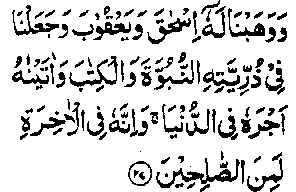 وَوَهَبْنَا لَهٗۤ اِسْحٰقَ وَيَعْقُوْبَ وَجَعَلْنَا
فِيْ ذُرِّيَّتِهِ النُّبُوَّةَ وَالْكِتٰبَ وَاٰتَيْنٰهُ
اَجْرَهٗ فِي الدُّنْيَا ۚ وَاِنَّهٗ فِي الْاٰخِرَةِ
لَمِنَ الصّٰلِحِيْنَ ﴿۲۷﴾